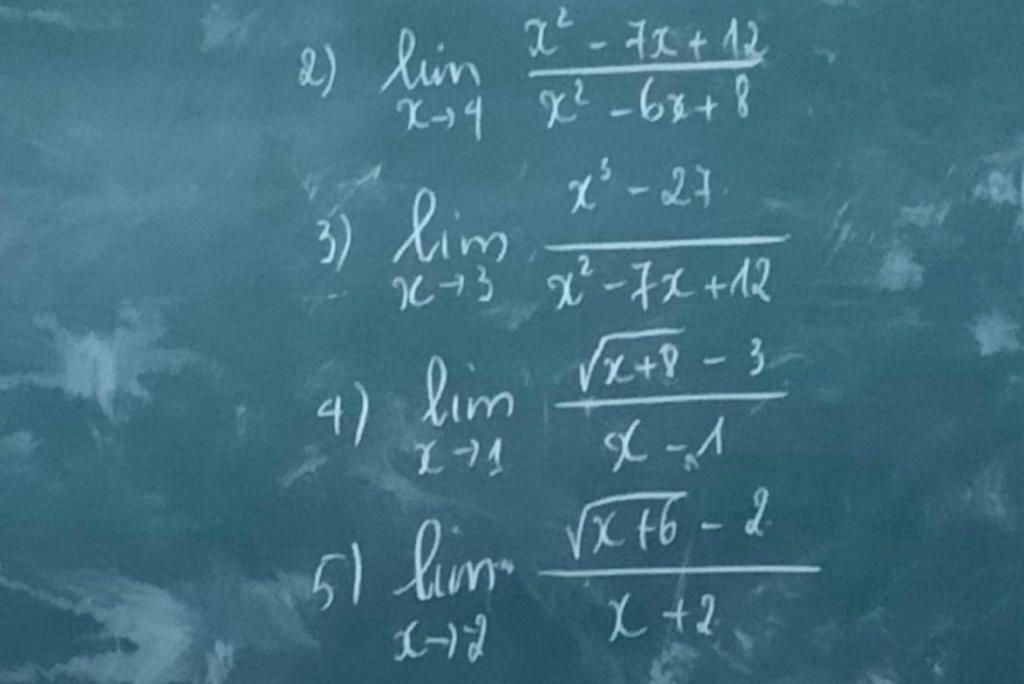 2) lim x→4 (x² - 7x + 12) / (x² - 6x + 8)
3) lim x→3 (x³ - 27) / (x² - 7x + 12)
4) lim x→1 (√(x+8) - 3) / (x - 1)
5) lim x→-2 (√(x+6) - 2) / (x + 2)